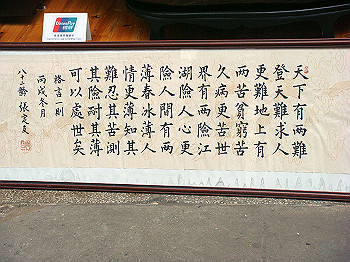 UnionPay
银联
天下有兩難
登天難求人
更難地上有
兩苦貧窮苦
久病更苦世
界有兩險江
湖險人心更
險人間有兩
薄春冰薄人
情更薄知其
難忍其苦測
其險耐其薄
可以處世矣
格言一則
丙戌冬月
張定